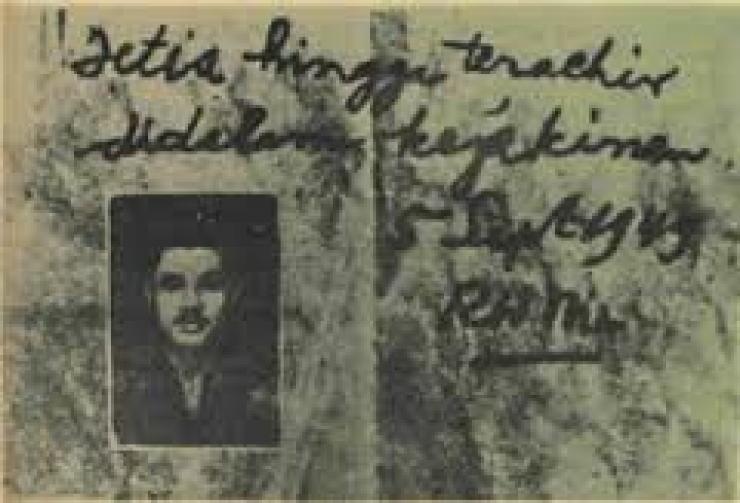 Setia hingga terachir
didalam kejakinan
5 Sept 1943